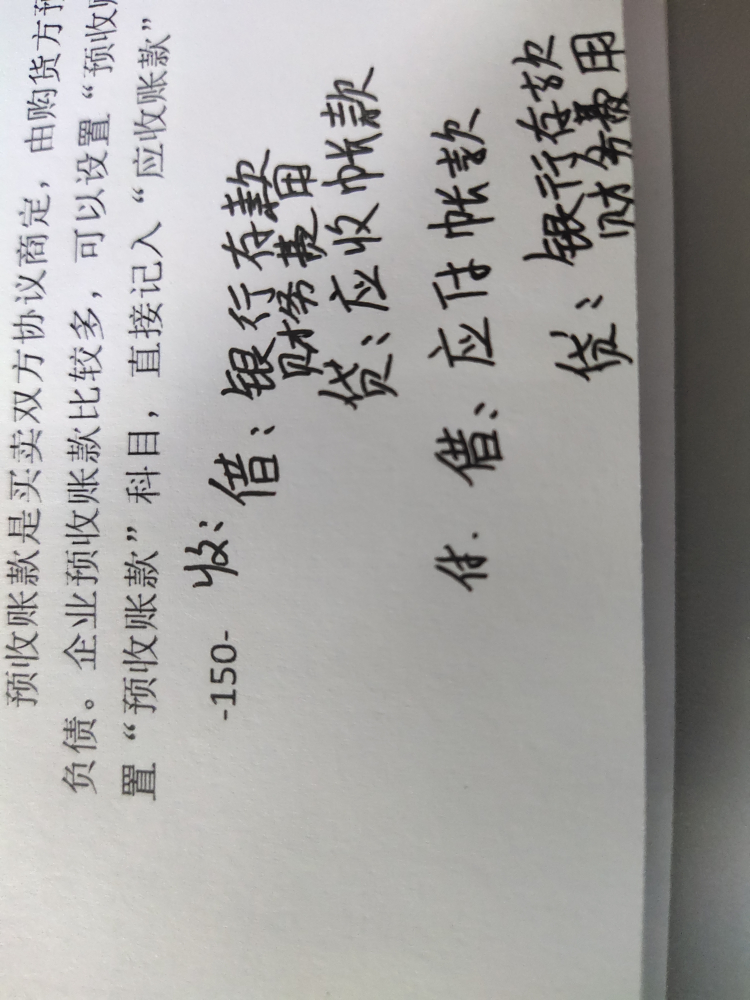 预收账款是买卖双方协议商定，由购货方预
负债。企业预收账款比较多，可以设置“预收
置“预收账款”科目，直接记入“应收账款”
-150-
收：借：银行存款
财务费用
贷：应收帐款
付．借：应付帐款
贷：银行存款
财务费用